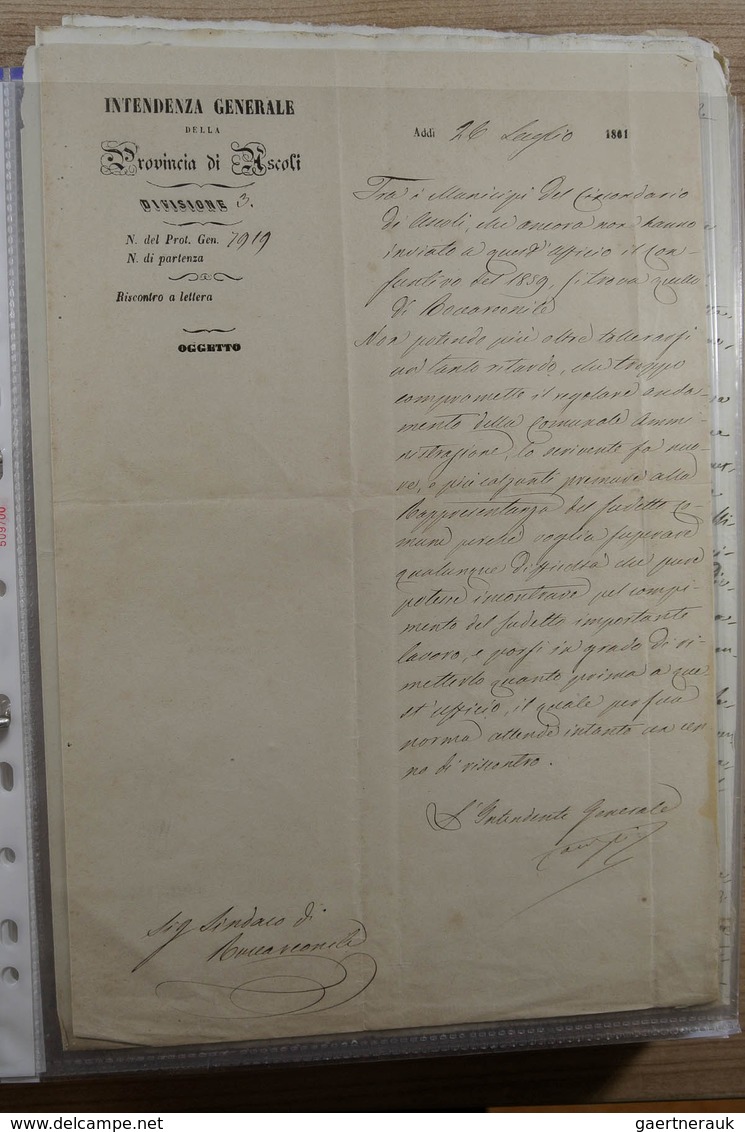 INTENDENZA GENERALE
DELLA
Provincia di Ascoli
DIVISIONE 3.
N. del Prot. Gen. 7919
N. di partenza
Riscontro a lettera
OGGETTO
Addì 26 Luglio 1861
Tra i Municipi del Circondario
di Ascoli, che ancora non hanno
inviato a quest'Ufficio il Con-
suntivo del 1859, si trova quello
di Roccamonile
Non potendo più oltre tollerarsi
un tanto ritardo, che troppo
compromette il regolare anda-
mento della Comunale Ammi-
nistrazione, lo scrivente fa nuo-
ve, e più calzanti premure alla
Rappresentanza del sudetto Co-
mune perchè voglia superare
qualunque difficoltà che pure
potesse incontrare pel compi-
mento del sudetto importante
lavoro, e porsi in grado di ri-
metterlo quanto prima a que-
st'ufficio, il quale per sua
norma attende intanto un cen-
no di riscontro.
L'Intendente Generale
Sig Sindaco di
Roccamonile
509/00
© gaertnerauk
gaertnerauk